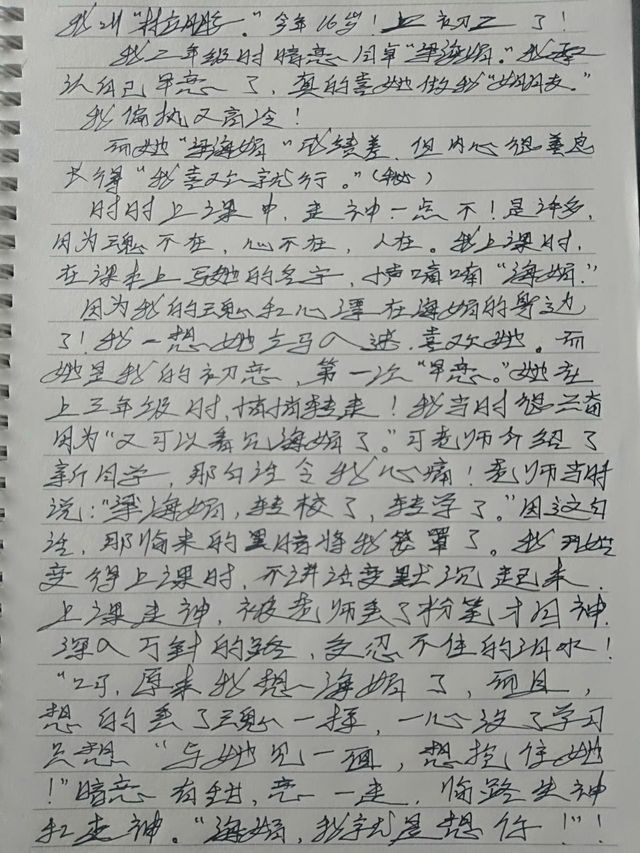 我叫"林立朋"。今年16岁！上初二了！
我二年级时暗恋同桌"梁海娟。"我承
认自己早恋了，真的喜她做我"女朋友。"
我偏执又高冷！
而她"梁海娟"成绩差，但内心很善良
长得"我喜欢就行。"
时时上课中，走神一点不！是许多，
因为魂不在，心不在，人在。我上课时，
在课本上写她的名字，口喃喃"海娟."
因为我的魂和心漂在海娟的身边
了！我一想她立马入迷，喜欢她。而
她是我的初恋，第一次"早恋。"她在
上三年级时，悄悄转走！我当时很兴奋
因为"又可以看见海娟了。"可老师介绍了
新同学，那句话令我心痛！老师当时
说："梁海娟，转校了，转学了。"因这句
话，那临来的黑暗将我笼罩了。我开始
变得上课时，不讲话变默沉起来，
上课走神，被老师丢了粉笔才回神，
深入万针的路，多忍不住的泪水！
"哎，原来我想海娟了，而且，
想的丢了魂一样，一心没了学习
只想"与她见一面，想抱住她
！"暗恋有错，恋一走，临路失神
和走神。"海娟，我就是想你！"！